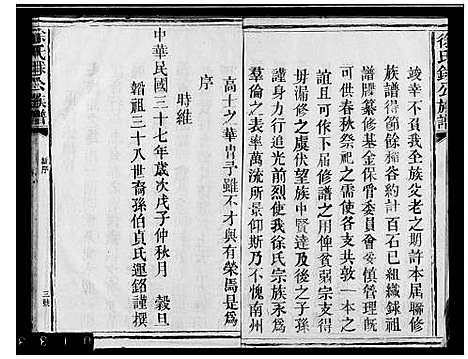 徐氏錄公族譜
竣幸不負我全族父老之期許本屆聯
族譜得節餘穀各約計百石已組織錄祖
譜牒纂修基金保管委員會妥慎管理既
可供春秋祭祀之需復使各支共敦一本之
誼且可作下屆修譜之用俾貧弱宗支得
毋漏修之虞伏望族中賢達及後之子孫
謹身力行追光前烈使我徐氏宗族永為
羣倫之表率萬流所景仰斯乃不愧南州
高士之華胄予雖不才與有榮焉是為
序
時維
中華民國三十七年歲次戊子仲秋月 穀旦
韜祖三十八世裔孫伯貞氏運銘謹撰
徐氏錄公族譜
新序
三